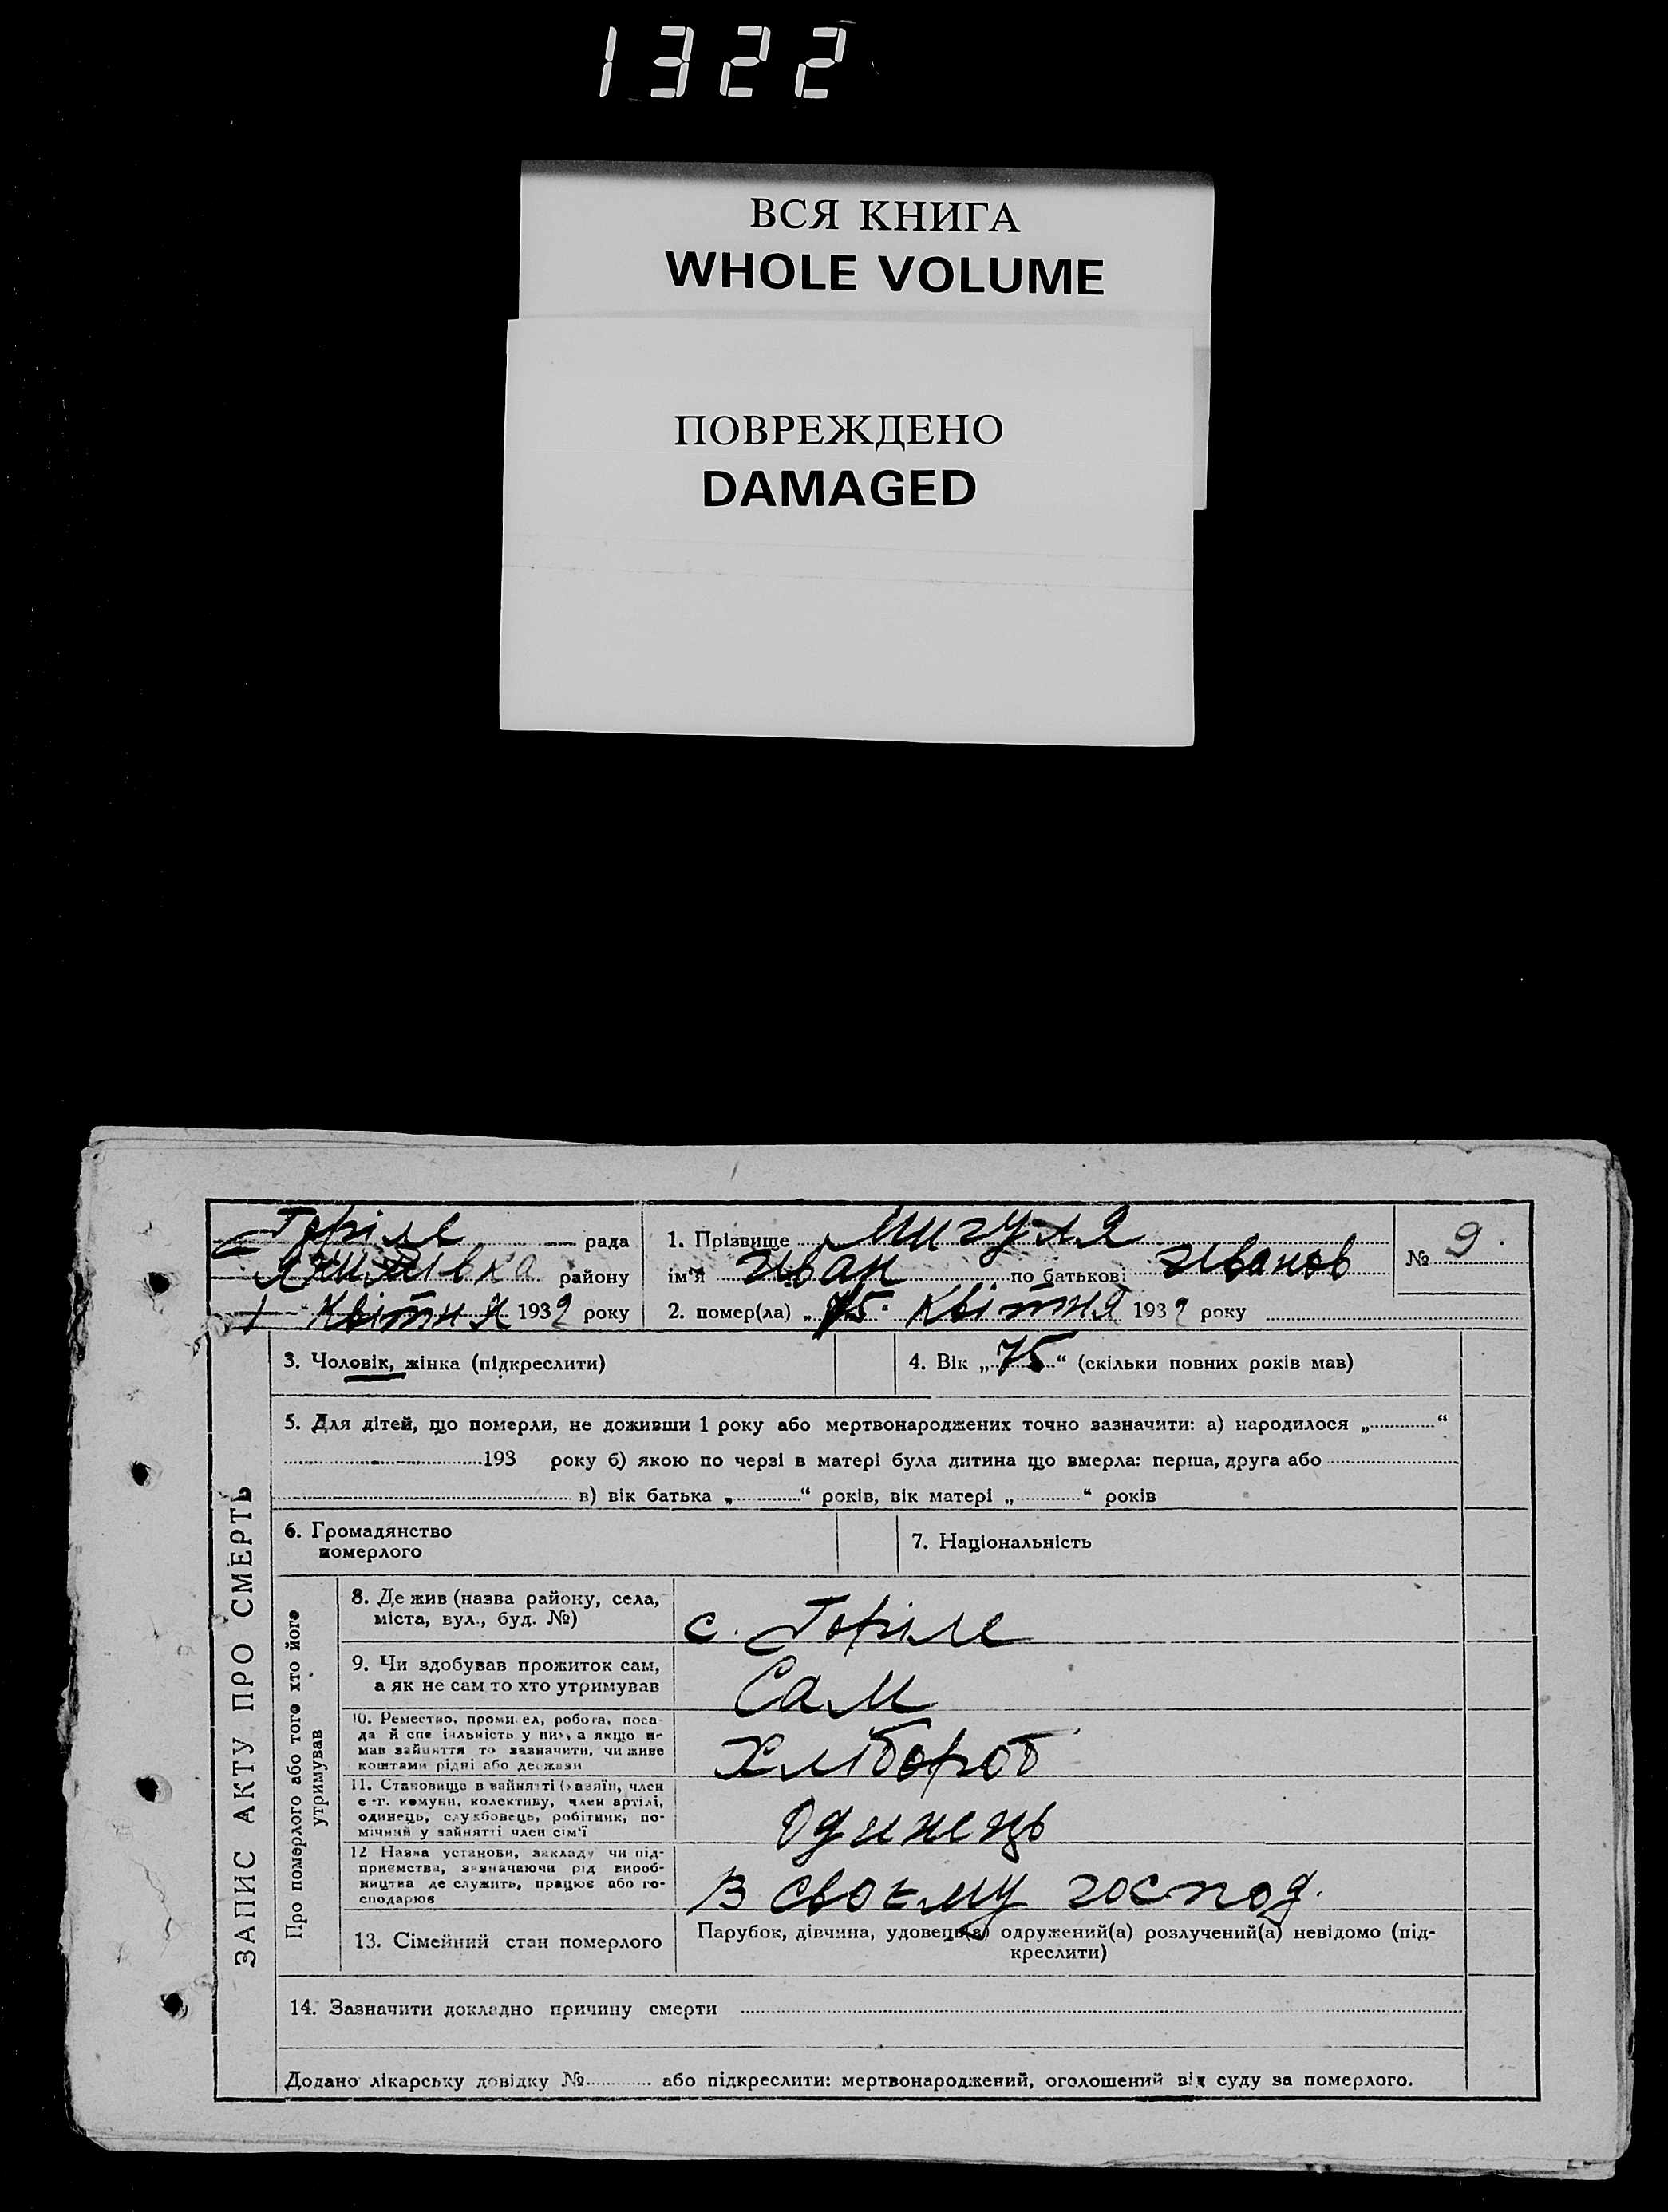 1322
ВСЯ КНИГА
WHOLE VOLUME
ПОВРЕЖДЕНО
DAMAGED
Горіле рада
району
1 Квітня 1932 року
1. Прізвище Мигуля
ім'я Иван по батькові Иванов
№ 9.
2. помер(ла) „ Квітня 1932 року
ЗАПИС АКТУ ПРО СМЕРТЬ
3. Чоловік, жінка (підкреслити)
4. Вік „75“ (скільки повних років мав)
5. Для дітей, що померли, не доживши 1 року або мертвонароджених точно зазначити: а) народилося „ “
193 року б) якою по черзі в матері була дитина що вмерла: перша, друга або
в) вік батька „ “ років, вік матері „ “ років
6. Громадянство
померлого
7. Національність
Про померлого або того хто його
утримував
8. Де жив (назва району, села,
міста, вул., буд. №)
с. Горіле
9. Чи здобував прожиток сам,
а як не сам то хто утримував
Сам
10. Ремество, промисел, робота, поса-
да й спеціяльність у них, а якщо не
мав зайняття то зазначити, чи живе
коштами рідні або держави
Хлібороб
11. Становище в зайнятті (хазяїн, член
с.-г. комуни, колективу, член артілі,
одинець, службовець, робітник, по-
мічний у зайнятті член сім'ї
Одинець
12 Назва установи, закладу чи під-
приємства, зазначаючи рід вироб-
ництва де служить, працює або го-
сподарює
В своєму господ.
13. Сімейний стан померлого
Парубок, дівчина, удовець(а) одружений(а) розлучений(а) невідомо (під-
креслити)
14. Зазначити докладно причину смерти
Додано лікарську довідку № або підкреслити: мертвонароджений, оголошений від суду за померлого.